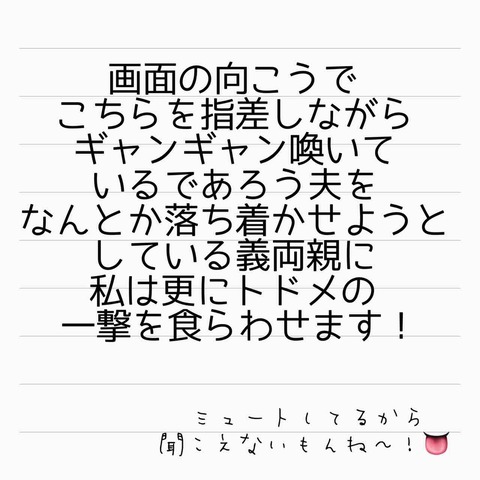 画面の向こうで
こちらを指差しながら
ギャンギャン喚いて
いるであろう夫を
なんとか落ち着かせようと
している義両親に
私は更にトドメの
一撃を食らわせます！
ミュートしてるから
聞こえないもんね〜！👅